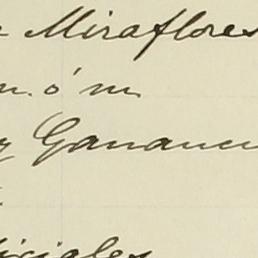 Miraflores
m. ó m.
y Gananci
iciales